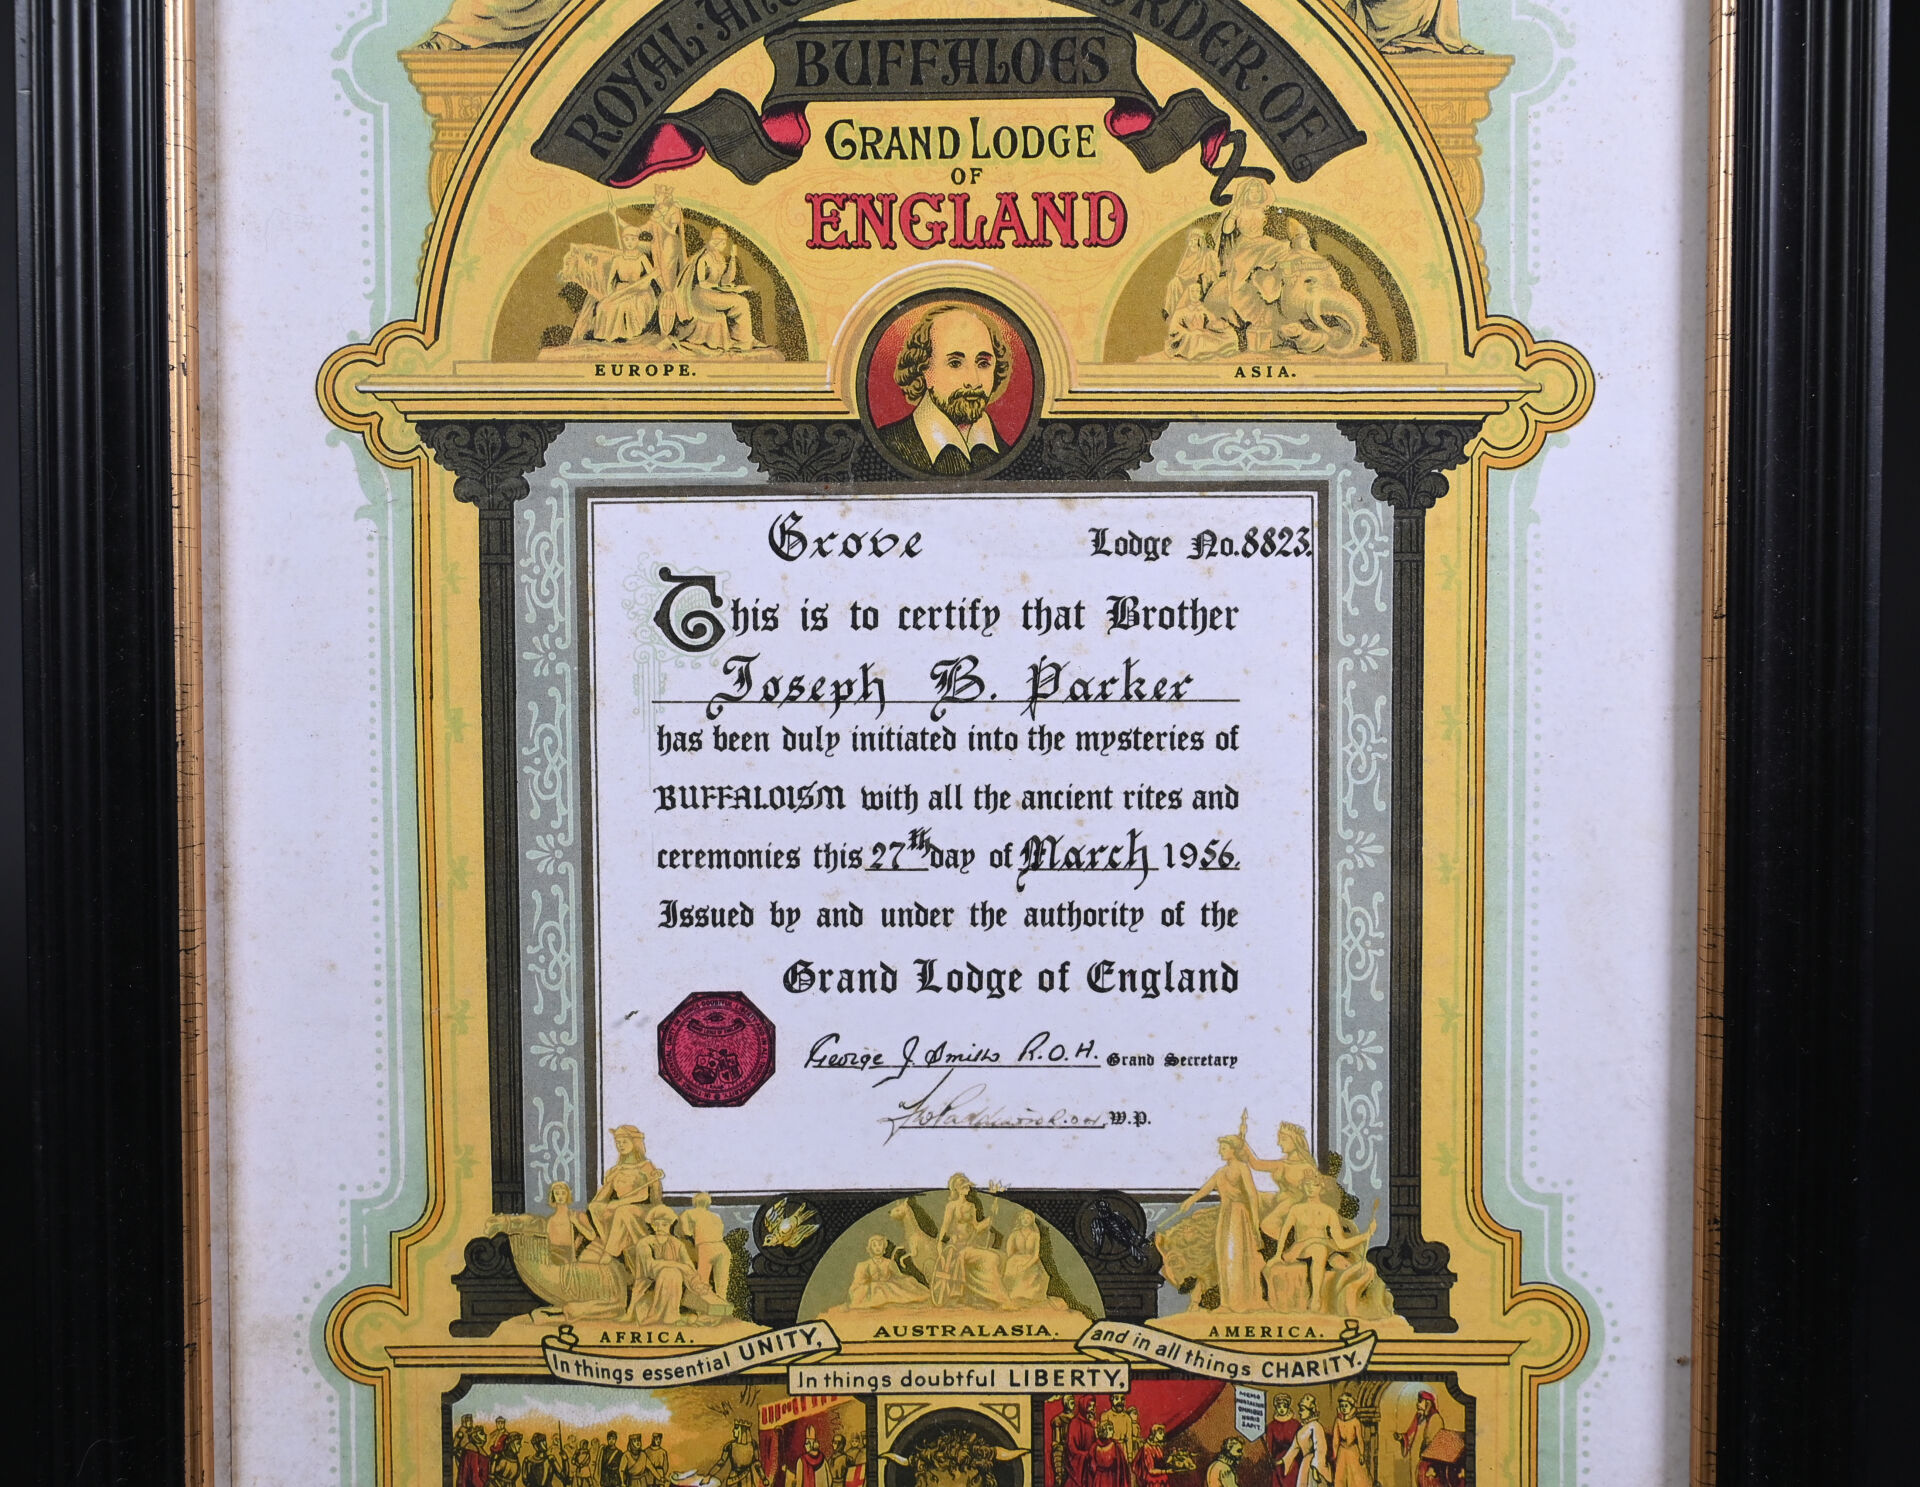 ROYAL ORDER OF
BUFFALOES
GRAND LODGE
OF
ENGLAND
EUROPE.
ASIA.
Grove Lodge No. 8823.
This is to certify that Brother
Joseph B. Parker
has been duly initiated into the mysteries of
BUFFALOISM with all the ancient rites and
ceremonies this 27th day of March 1956.
Issued by and under the authority of the
Grand Lodge of England
George J. Smith R.O.H. Grand Secretary
R.O.H. W.P.
AFRICA.
AUSTRALASIA.
AMERICA.
In things essential UNITY,
In things doubtful LIBERTY,
and in all things CHARITY.